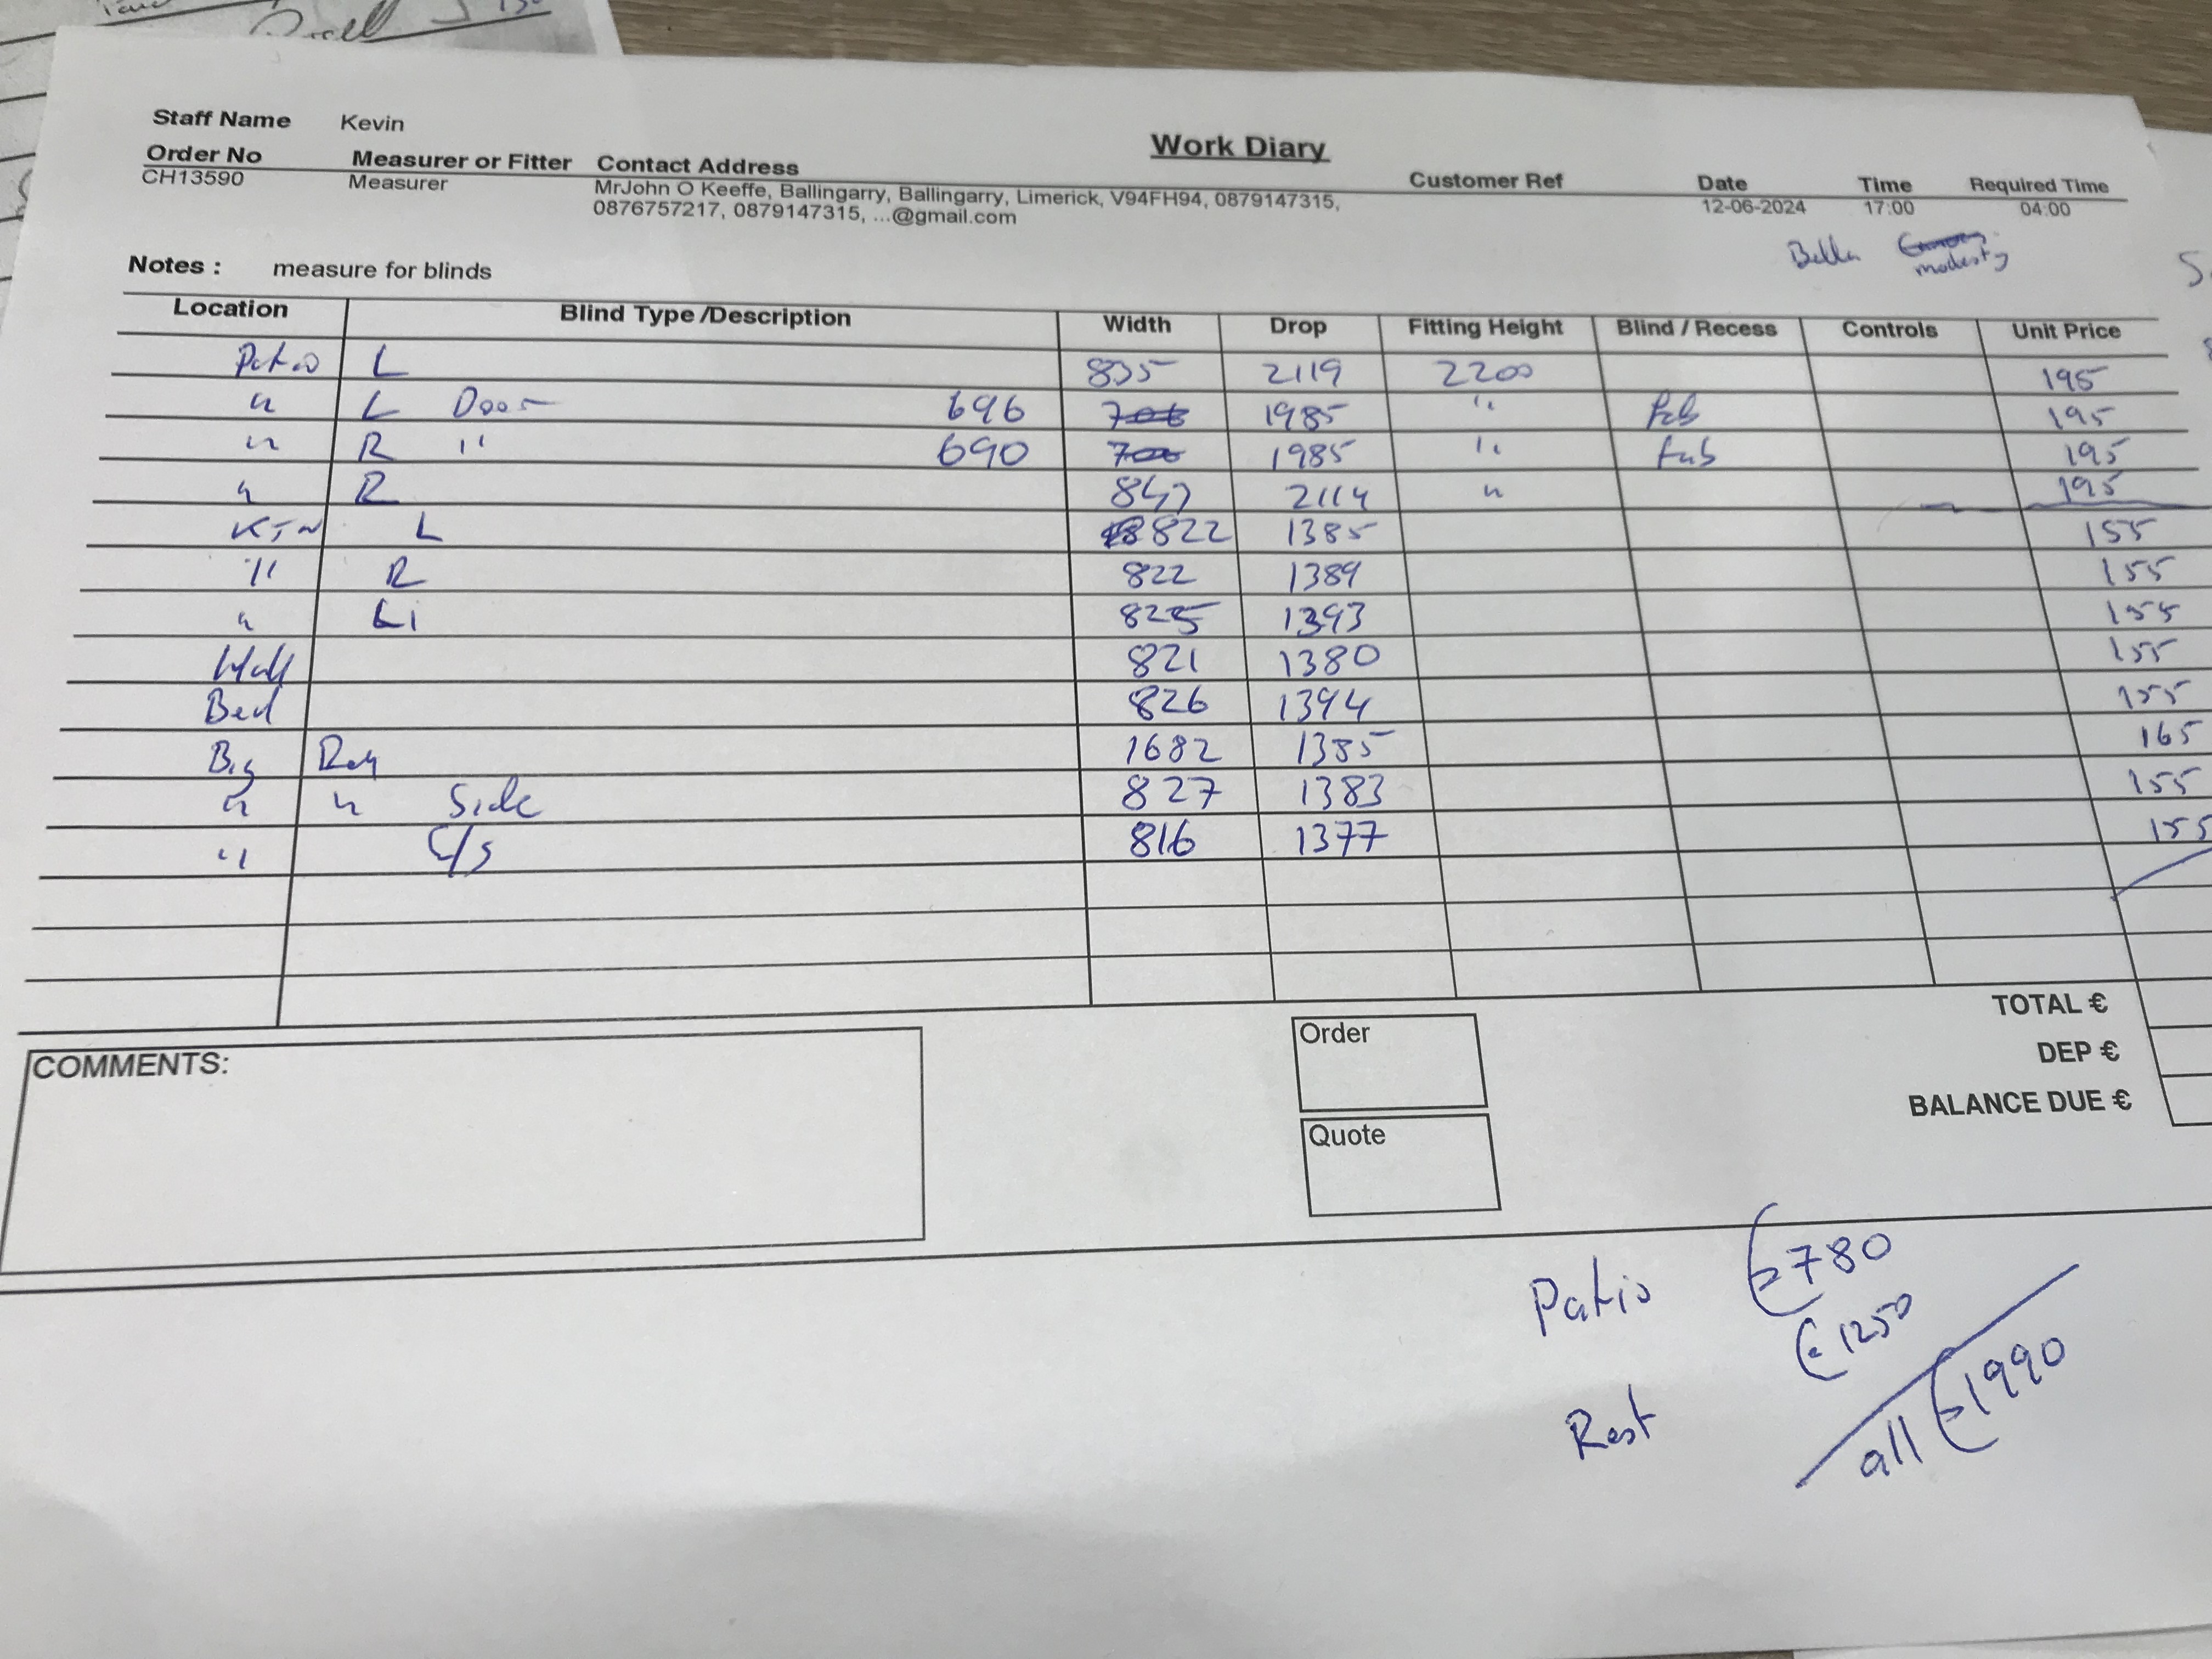 Staff Name Kevin
Work Diary
Order No Measurer or Fitter Contact Address Customer Ref Date Time Required Time
CH13590 Measurer MrJohn O Keeffe, Ballingarry, Ballingarry, Limerick, V94FH94, 0879147315, 12-06-2024 17:00 04:00
0876757217, 0879147315, ...@gmail.com
Bella
modesty
Notes : measure for blinds
Location Blind Type /Description Width Drop Fitting Height Blind / Recess Controls Unit Price
Patio L 835 2119 2200 195
" L Door 696 706 1985 " Fab 195
" R " 690 700 1985 " Fab 195
" R 847 2114 " 195
L 822 1385 155
" R 822 1389 155
" 825 1393 155
Hall 821 1380 155
Bed 826 1394 155
Big 1682 1385 165
" " Side 827 1383 155
" C/S 816 1377 155
TOTAL €
DEP €
BALANCE DUE €
COMMENTS:
Order
Quote
Patio €780
€1250
Rest
all €1990